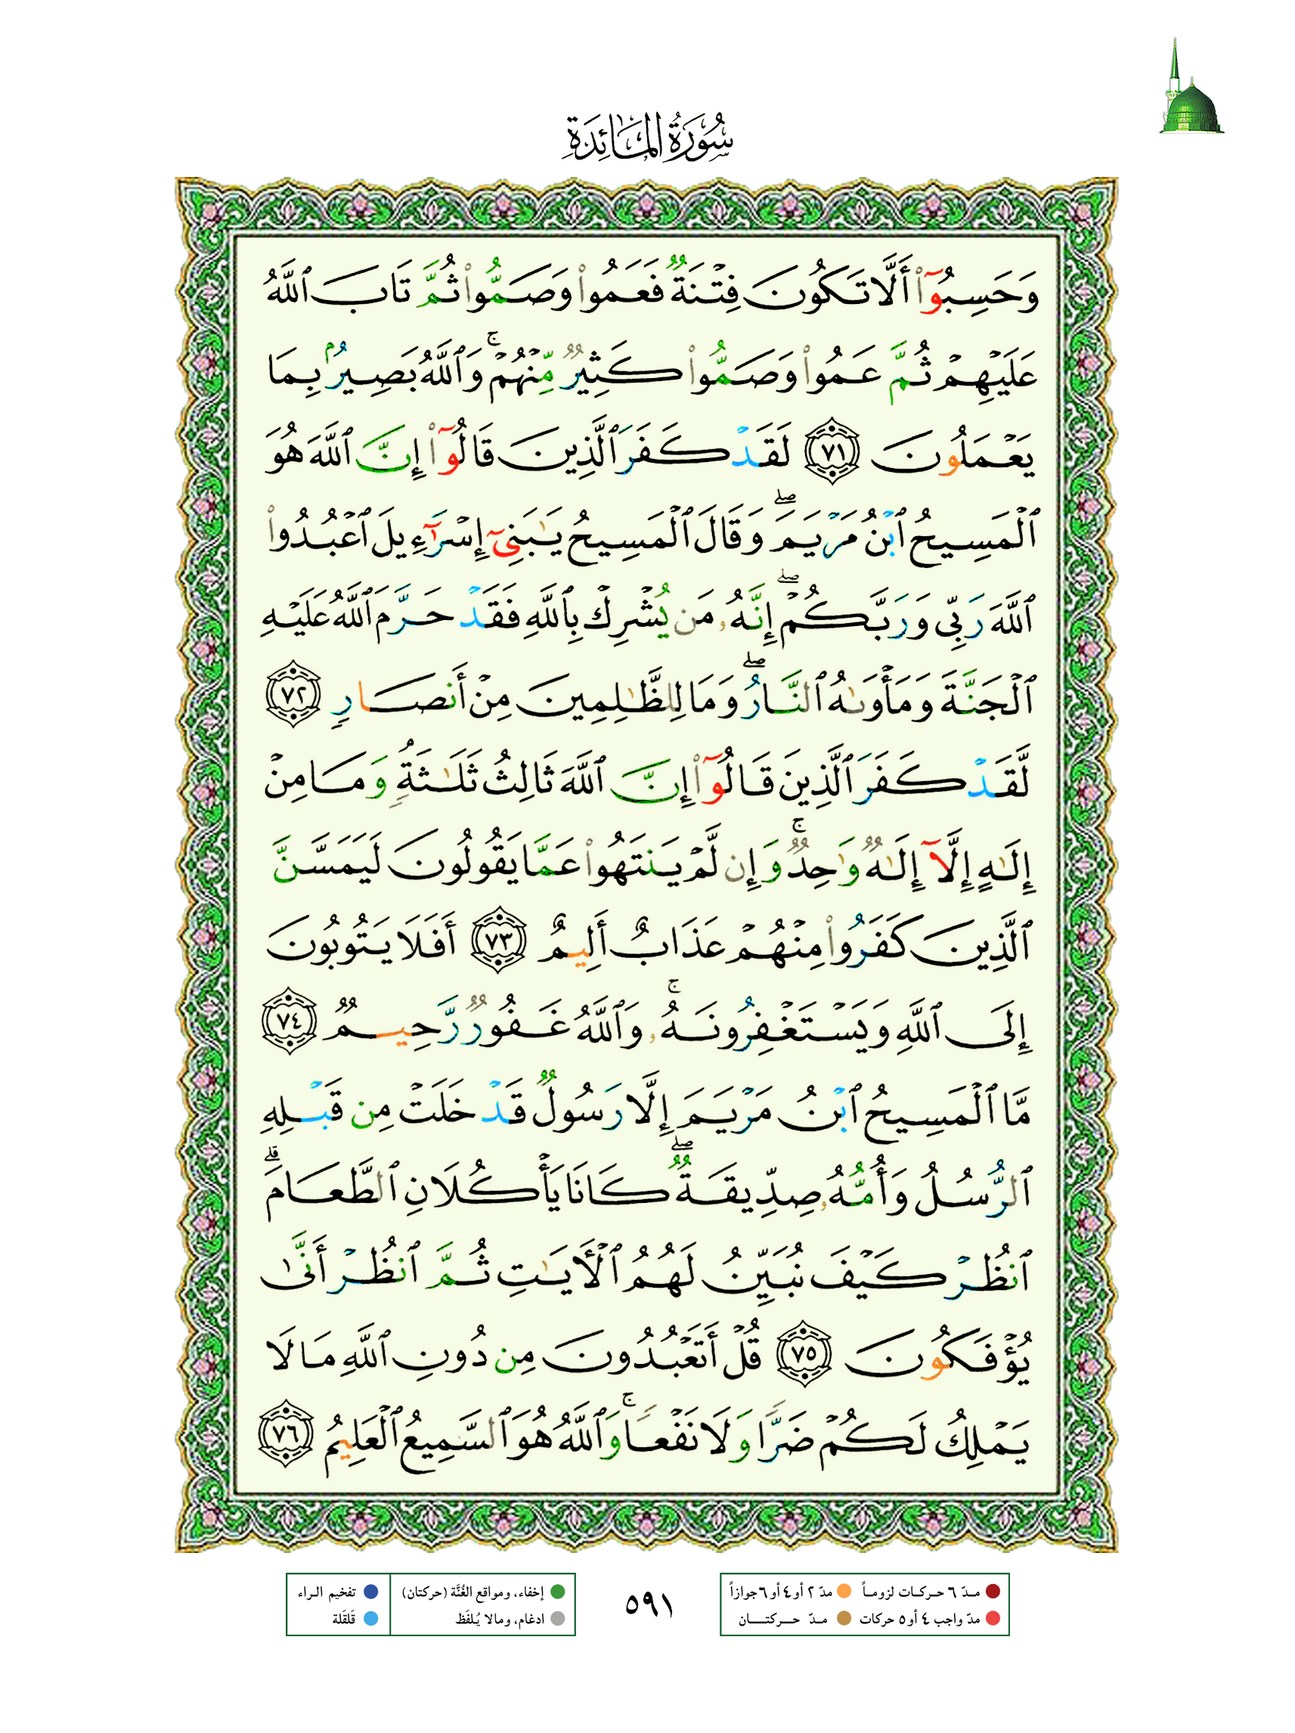 سُورَةُ المَائِدَةِ
وَحَسِبُوٓا۟ أَلَّا تَكُونَ فِتْنَةٌ فَعَمُوا۟ وَصَمُّوا۟ ثُمَّ تَابَ ٱللَّهُ
عَلَيْهِمْ ثُمَّ عَمُوا۟ وَصَمُّوا۟ كَثِيرٌ مِّنْهُمْ ۚ وَٱللَّهُ بَصِيرٌۢ بِمَا
يَعْمَلُونَ ٧١ لَقَدْ كَفَرَ ٱلَّذِينَ قَالُوٓا۟ إِنَّ ٱللَّهَ هُوَ
ٱلْمَسِيحُ ٱبْنُ مَرْيَمَ ۖ وَقَالَ ٱلْمَسِيحُ يَـٰبَنِىٓ إِسْرَٰٓءِيلَ ٱعْبُدُوا۟
ٱللَّهَ رَبِّى وَرَبَّكُمْ ۖ إِنَّهُۥ مَن يُشْرِكْ بِٱللَّهِ فَقَدْ حَرَّمَ ٱللَّهُ عَلَيْهِ
ٱلْجَنَّةَ وَمَأْوَىٰهُ ٱلنَّارُ ۖ وَمَا لِلظَّـٰلِمِينَ مِنْ أَنصَارٍ ٧٢
لَّقَدْ كَفَرَ ٱلَّذِينَ قَالُوٓا۟ إِنَّ ٱللَّهَ ثَالِثُ ثَلَـٰثَةٍ ۘ وَمَا مِنْ
إِلَـٰهٍ إِلَّآ إِلَـٰهٌ وَٰحِدٌ ۚ وَإِن لَّمْ يَنتَهُوا۟ عَمَّا يَقُولُونَ لَيَمَسَّنَّ
ٱلَّذِينَ كَفَرُوا۟ مِنْهُمْ عَذَابٌ أَلِيمٌ ٧٣ أَفَلَا يَتُوبُونَ
إِلَى ٱللَّهِ وَيَسْتَغْفِرُونَهُۥ ۚ وَٱللَّهُ غَفُورٌ رَّحِيمٌ ٧٤
مَّا ٱلْمَسِيحُ ٱبْنُ مَرْيَمَ إِلَّا رَسُولٌ قَدْ خَلَتْ مِن قَبْلِهِ
ٱلرُّسُلُ وَأُمُّهُۥ صِدِّيقَةٌ ۖ كَانَا يَأْكُلَانِ ٱلطَّعَامَ ۗ
ٱنظُرْ كَيْفَ نُبَيِّنُ لَهُمُ ٱلْـَٔايَـٰتِ ثُمَّ ٱنظُرْ أَنَّىٰ
يُؤْفَكُونَ ٧٥ قُلْ أَتَعْبُدُونَ مِن دُونِ ٱللَّهِ مَا لَا
يَمْلِكُ لَكُمْ ضَرًّا وَلَا نَفْعًا ۚ وَٱللَّهُ هُوَ ٱلسَّمِيعُ ٱلْعَلِيمُ ٧٦
مـدّ ٦ حـركـات لزومـاً مدّ ٢ أو ٤ أو ٦ جوازاً
مدّ واجب ٤ أو ٥ حركات مـدّ حـــركتـــــان
٥٩١
إخفاء، ومواقع الغُنَّة (حركتان) تفخيم الـراء
ادغام، ومالا يُـلفَظ قَلقَلة